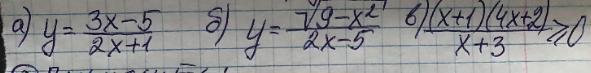 а) y = (3x-5)/(2x+1) б) y = √(9-x²)/(2x-5) в) (x+1)(4x+2)/(x+3) ≥ 0